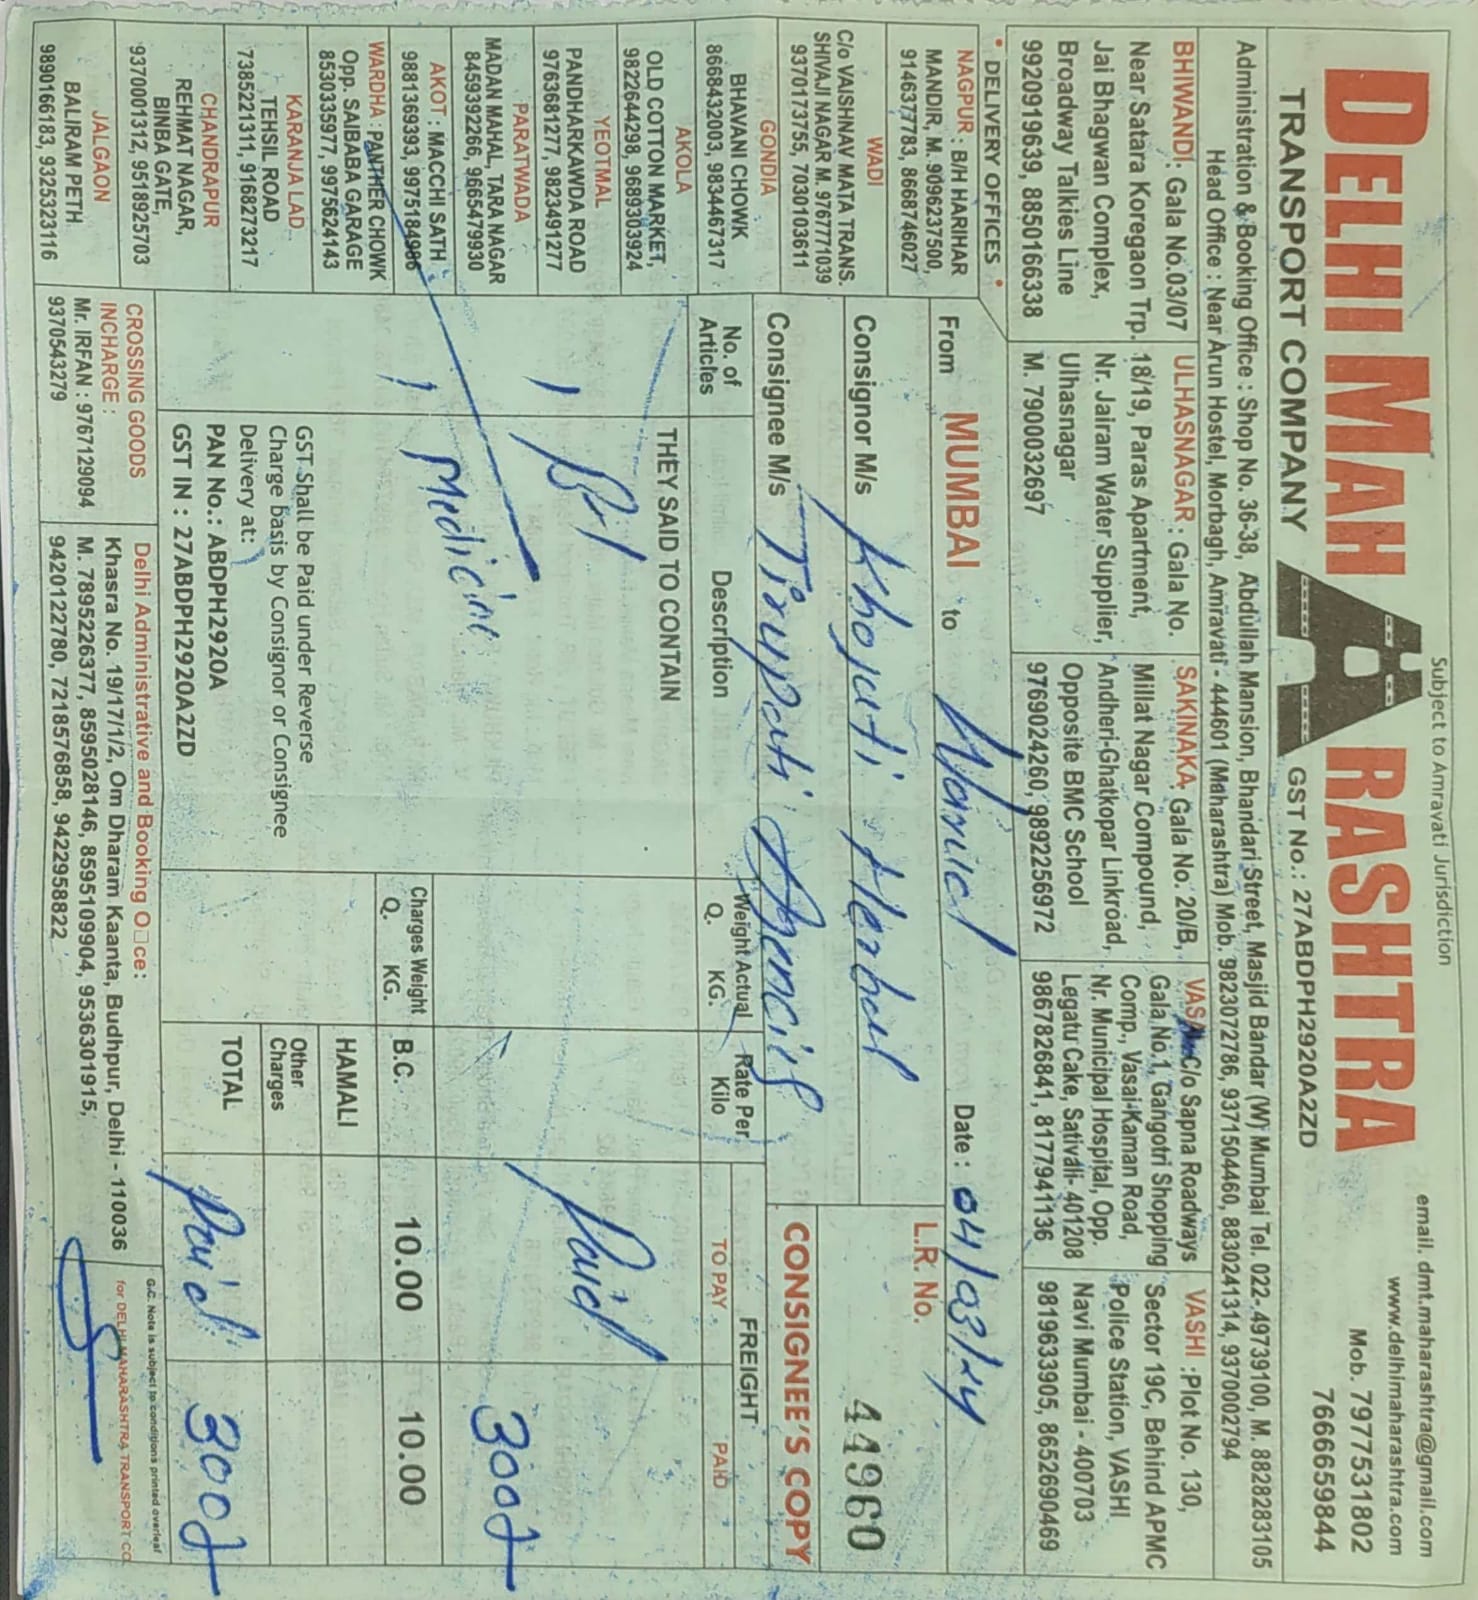 Subject to Amravati Jurisdiction
email. dmt.maharashtra@gmail.com
www.delhimaharashtra.com
DELHI MAHARASHTRA
Mob. 7977531802
7666659844
TRANSPORT COMPANY
GST No.: 27ABDPH2920A2ZD
Administration & Booking Office : Shop No. 36-38, Abdullah Mansion, Bhandari Street, Masjid Bandar (W) Mumbai Tel. 022- 49739100, M. 8828283105
Head Office : Near Arun Hostel, Morbagh, Amravati - 444601 (Maharashtra) Mob. 9823072786, 9371504460, 8830241314, 9370002794
BHIWANDI : Gala No.03/07
Near Satara Koregaon Trp.
Jai Bhagwan Complex,
Broadway Talkies Line
9920919639, 8850166338
ULHASNAGAR : Gala No.
18/19, Paras Apartment,
Nr. Jairam Water Supplier,
Ulhasnagar
M. 7900032697
SAKINAKA: Gala No. 20/B,
Millat Nagar Compound,
Andheri-Ghatkopar Linkroad,
Opposite BMC School
9769024260, 9892256972
VASAI C/o Sapna Roadways
Gala No.1, Gangotri Shopping
Comp., Vasai-Kaman Road,
Nr. Municipal Hospital, Opp.
Legatu Cake, Sativali- 401208
9867826841, 8177941136
VASHI :Plot No. 130,
Sector 19C, Behind APMC
Police Station, VASHI
Navi Mumbai - 400703
9819633905, 8652690469
• DELIVERY OFFICES •
NAGPUR : B/H HARIHAR
MANDIR, M. 9096237500,
9146377783, 8668746027
WADI
C/o VAISHNAV MATA TRANS.
SHIVAJI NAGAR M. 9767771039
9370173755, 7030103611
GONDIA
BHAVANI CHOWK
8668432003, 9834467317
AKOLA
OLD COTTON MARKET,
9822644298, 9689303924
YEOTMAL
PANDHARKAWDA ROAD
9763681277, 9823491277
PARATWADA
MADAN MAHAL, TARA NAGAR
8459392266, 9665479930
AKOT : MACCHI SATH
9881369393, 9975184986
WARDHA : PANTHER CHOWK
Opp. SAIBABA GARAGE
8530335977, 9975624143
KARANJA LAD
TEHSIL ROAD
7385221311, 9168273217
CHANDRAPUR
REHMAT NAGAR,
BINBA GATE,
9370001312, 9518925703
JALGAON
BALIRAM PETH
9890166183, 9325323116
From MUMBAI to
Date : 04/03/24
L.R. No.
44960
Consignor M/s Khojati Herbal
Consignee M/s Tirupati Agencies
CONSIGNEE'S COPY
No. of
Articles
Description
Weight Actual
Q. KG.
Rate Per
Kilo
FREIGHT
TO PAY
PAID
THEY SAID TO CONTAIN
1
Paid
300/-
1 Medicine
Charges Weight
Q. KG.
B.C.
10.00
10.00
HAMALI
Other
Charges
TOTAL
Paid
300/-
GST Shall be Paid under Reverse
Charge basis by Consignor or Consignee
Delivery at:
PAN No.: ABDPH2920A
GST IN : 27ABDPH2920A2ZD
CROSSING GOODS
INCHARGE :
Mr. IRFAN : 9767129094
9370543279
Delhi Administrative and Booking O□ce :
Khasra No. 19/17/1/2, Om Dharam Kaanta, Budhpur, Delhi - 110036
M. 7895226377, 8595028146, 8595109904, 9536301915,
9420122780, 7218576858, 9422958822
G.C. Note is subject to conditions printed overleaf
for DELHI MAHARASHTRA TRANSPORT CO